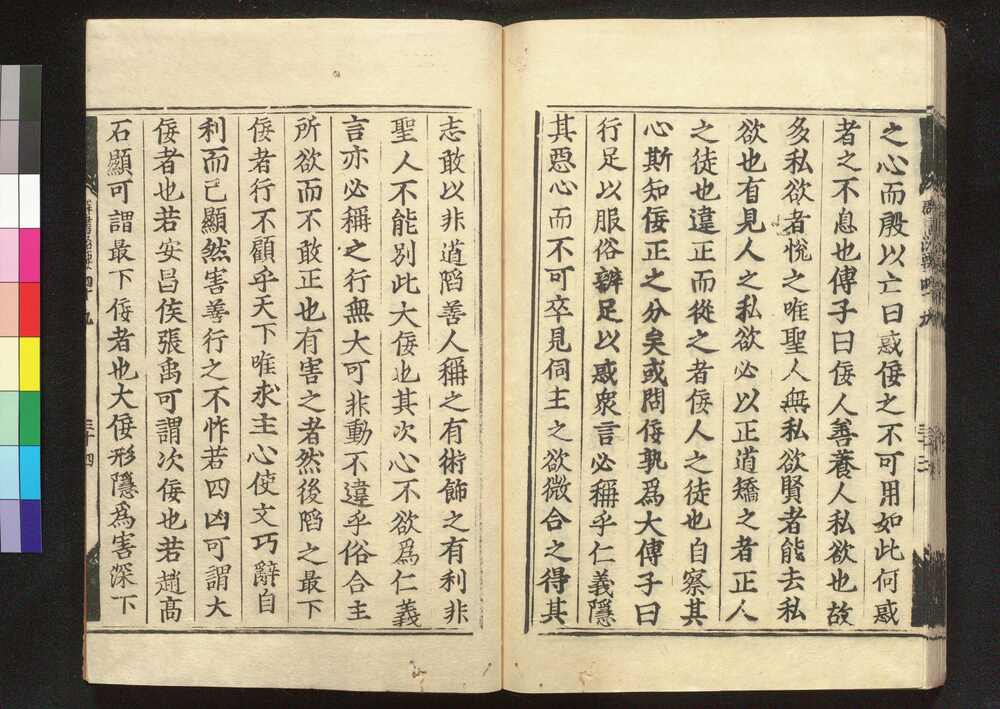 之心而殷以亡曰惑佞之不可用如此何惑
者之不息也傅子曰佞人善養人私欲也故
多私欲者悅之唯聖人無私欲賢者能去私
欲也有見人之私欲必以正道矯之者正人
之徒也違正而從之者佞人之徒也自察其
心斯知佞正之分矣或問佞孰爲大傅子曰
行足以服俗辨足以惑衆言必稱乎仁義隱
其惡心而不可卒見伺主之欲微合之得其
志敢以非道陷善人稱之有術飾之有利非
聖人不能別此大佞也其次心不欲爲仁義
言亦必稱之行無大可非動不違乎俗合主
所欲而不敢正也有害之者然後陷之最下
佞者行不顧乎天下唯求主心使文巧辭自
利而已顯然害善行之不怍若四凶可謂大
佞者也若安昌侯張禹可謂次佞也若趙高
石顯可謂最下佞者也大佞形隱爲害深下
群書治要 四十九
三十四